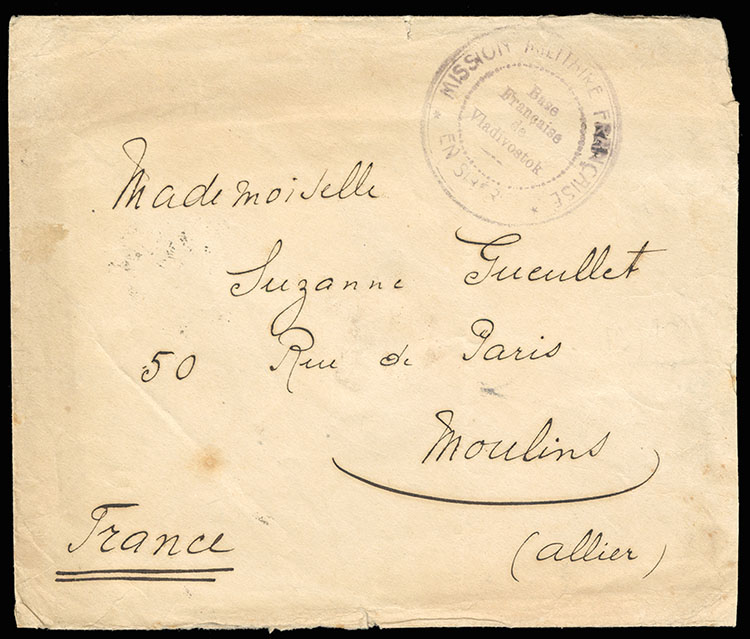 MISSION MILITAIRE FRANÇAISE
Base
Française
de
Vladivostok
EN
Mademoiselle
Suzanne Gueullet
50 Rue de Paris
Moulins
(allier)
France